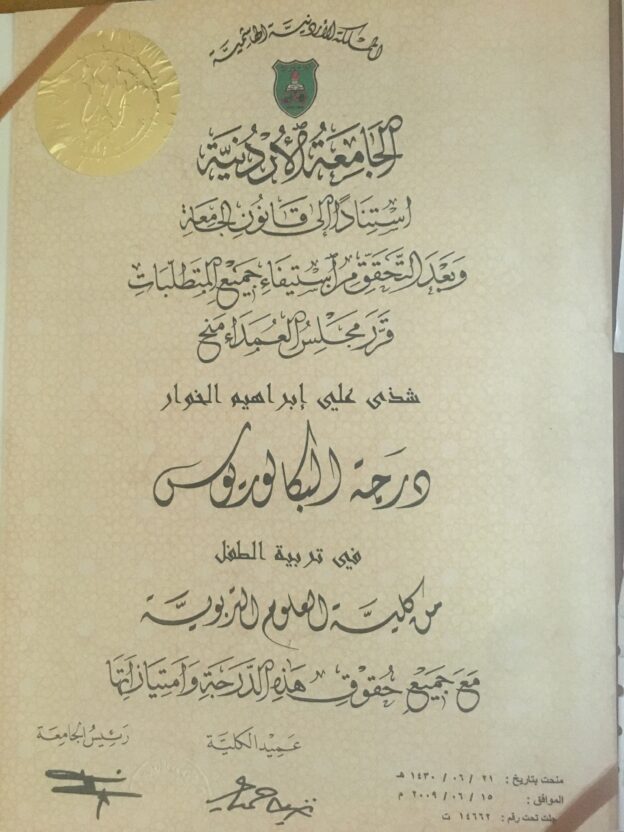 المملكة الأردنية الهاشمية
الجَامِعَةُ الأُرْدُنِيَّة
اسْتِنَادًا إلى قَانُونِ الجَامِعَةِ
وَبَعْدَ التَّحَقُّقِ مِنْ اسْتِيفَاءِ جَمِيعِ المُتَطَلَّبَاتِ
قَرَّرَ مَجْلِسُ العُمَدَاءِ مَنْحَ
شذى علي إبراهيم الخوار
دَرَجَة البكالوريوس
في تربية الطفل
من كليَّة العلوم التربويَّة
مَعَ جَمِيعِ حُقُوقِ هَذِهِ الدَّرَجَةِ وَامْتِيَازَاتِهَا
عَمِيدُ الكليَّة
رَئِيسُ الجَامِعَة
منحت بتاريخ : ٢١ / ٠٦ / ١٤٣٠ هـ
الموافق : ١٥ / ٠٦ / ٢٠٠٩ م
تحت رقم : ١٤٦٦٢ ت